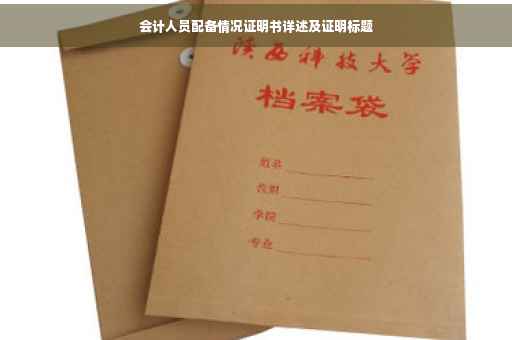 会计人员配备情况证明书详述及证明标题
陕西科技大学
档案袋
学院
专业